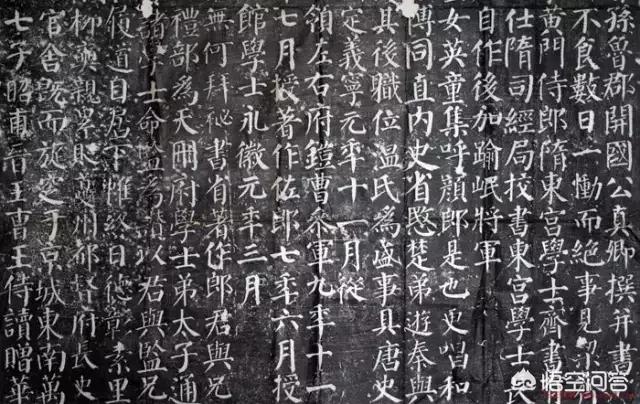 孫魯郡開國公真卿撰并書
不食數日一慟而絕事見梁
黃門侍郎隋東宮學士齊書
仕隋司經局校書東宮學士長
自作後加踰岷將軍
女英童集呼顏郎是也更唱和
傳同直內史省愍楚弟遊秦與
其後職位溫氏為盛事具唐史
定義寧元年十一月從
領左右府鎧曹參軍九年十一
七月授著作佐郎七年六月授
館學士永徽元年三月
無何拜祕書省著作郎君與兄
禮部為天冊府學士弟太子通
諸學士命監為讚以君與監兄
履道日居下帷終日德彰素里
柳奭親累貶夔州都督府長史
官舍既而旋窆于京城東南萬
七子昭甫晉王曹王侍讀贈華
悟空问答